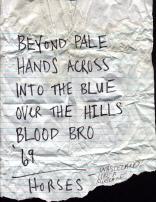 BEYOND PALE
HANDS ACROSS
INTO THE BLUE
OVER THE HILLS
BLOOD BRO
'69
HORSES